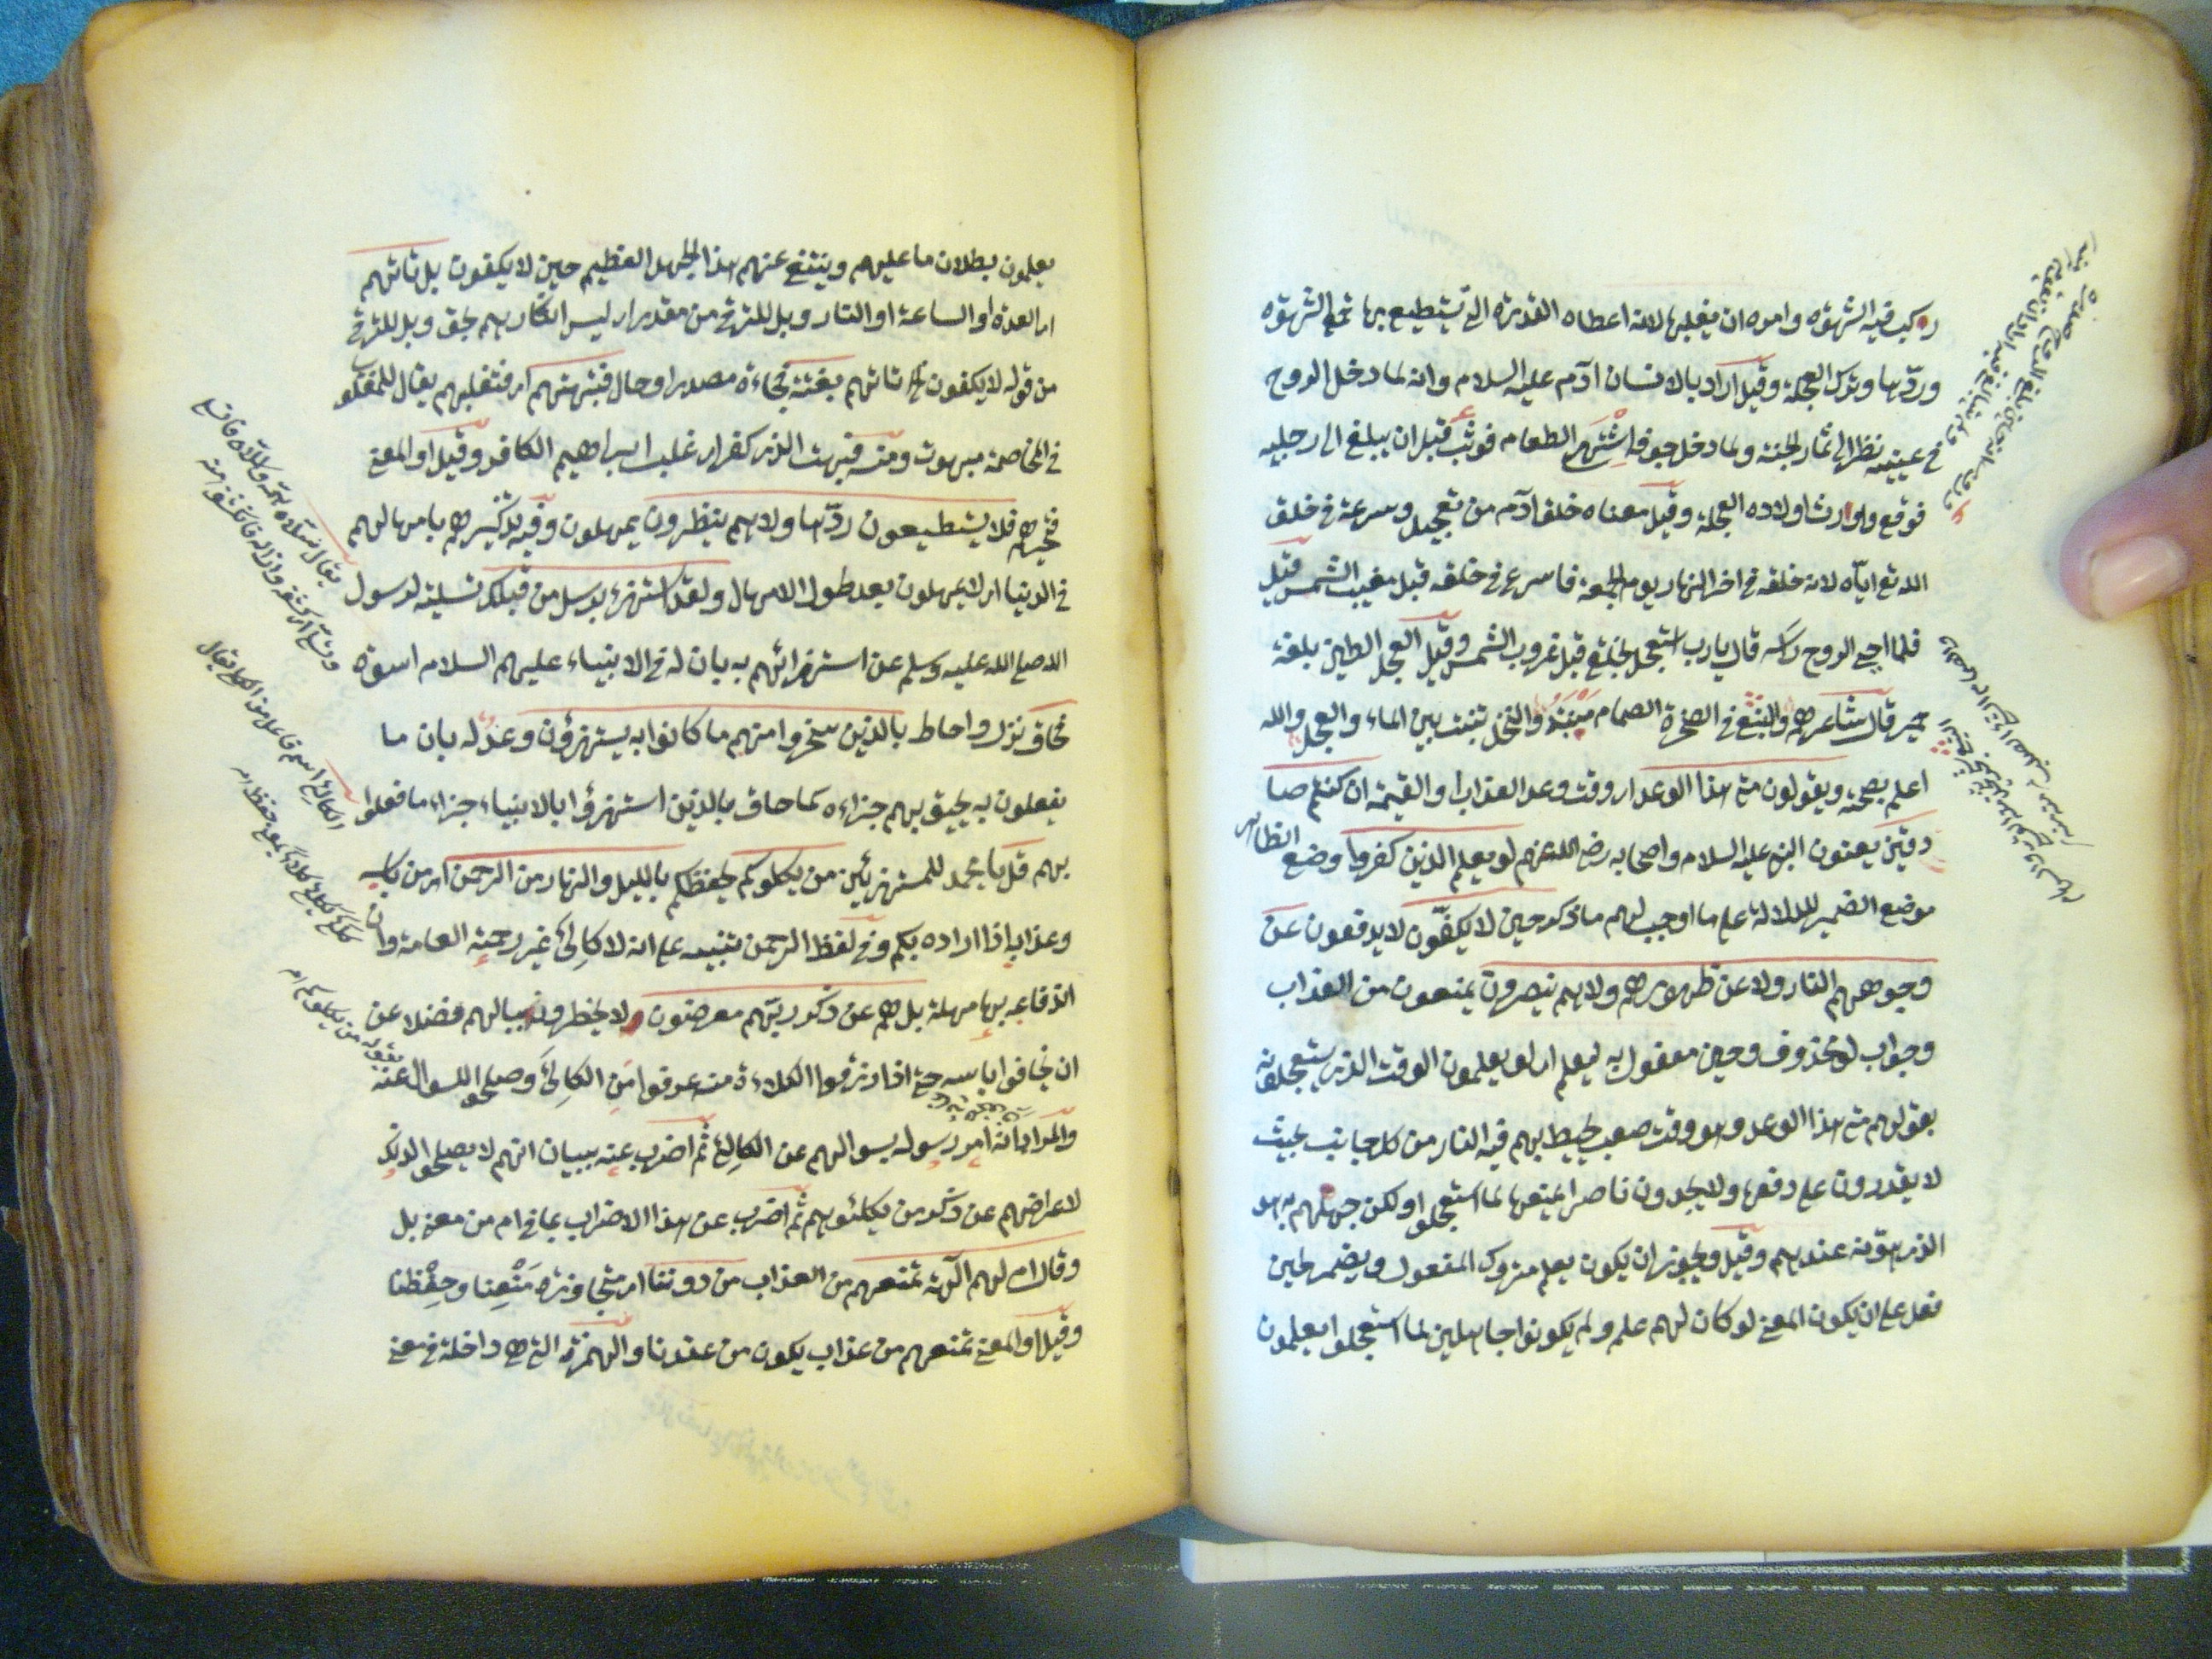 ركب فيه الشهوة وامره ان يغلبها لانه اعطاه القدرة التي يستطيع بها قمع الشهوة
وردّها وترك العجلة وقيل اراد بالانسان آدم عليه السلام وانه لما دخل الروح
في عينيه نظر الى ثمار الجنة ولما دخل جوفه اشتهى الطعام فوثب قبل ان يبلغ الى رجليه
فوقع واورث اولاده العجلة وقيل معناه خلق آدم من تعجيل وسرعة في خلق
الله تع اياه لانه خلقه في اخر النهار يوم الجمعة فاسرع في خلقه قبل مغيب الشمس قيل
فلما احيى الروح رأسه قال يارب استعجل بخلقي قبل غروب الشمس وقيل العجل الطين بلغة
حمير قال شاعرهم والنبع في الصخرة الصماء منبته والنخل تنبت بين الماء والعجل والله
اعلم بصحته ويقولون متى هذا الوعد اى وقت وعد العذاب او القيمة ان كنتم صا
دقين يعنون النبي عليه السلام واصحابه رضى الله عنهم لو يعلم الذين كفروا وضع الظاهر
موضع الضمير للدلالة على ما اوجب لهم ما ذكر حين لا يكفّون لا يدفعون عن
وجوههم النار ولا عن ظهورهم ولا هم ينصرون يمنعون من العذاب
وجواب لو محذوف وحين مفعول به ليعلم اى لو يعلمون الوقت الذى يستعجلونه
بقولهم متى هذا الوعد وهو وقت صعب يحيط بهم فيه النار من كل جانب بحيث
لا يقدرون على دفعها ولا يجدون ناصرا يمنعها لما استعجلوا ولكن جهلهم به هو
الذى هوّنه عندهم وقيل ويجوز ان يكون يعلم متروك المفعول ويضمر لحين
فعل على ان يكون المعنى لو كان لهم علم ولم يكونوا جاهلين لما استعجلوا يعلمون
يعلمون بطلان ما عليهم وينتفى عنهم هذا الجهل العظيم حين لا يكفون بل تأتيهم
اى العدة او الساعة او النار وبل للترقى من مقدر اى ليس انكارهم بحق وبل للترقى
من قوله لا يكفون تأتيهم بغتة فجاءة مصدر او حال فتبهتهم اى فتغلبهم يقال للمغلوب
في المخاصمة مبهوت ومنه فبهت الذى كفر اى غلب ابراهيم الكافر وقيل او المعنى
فتحيرهم فلا يستطيعون ردّها ولا هم ينظرون يمهلون وفيه تذكيرهم بامهالهم
في الدنيا اى لا يمهلون بعد طول الامهال ولقد استهزئ برسل من قبلك تسلية لرسول
الله صلى الله عليه وسلم عن استهزائهم به بان له في الانبياء عليهم السلام اسوة
فحاق نزل واحاط بالذين سخروا منهم ما كانوا به يستهزؤن وعد له بان ما
يفعلون به يحيق بهم جزاءه كما حاق بالذين استهزؤا بالانبياء جزاء ما فعلوا
بهم قل يا محمد للمستهزئين من يكلؤكم يحفظكم بالليل والنهار من الرحمن اى من بأسه
وعذابه اذا اراده بكم وفي لفظ الرحمن تنبيه على انه لا كالئ غير رحمته العامة وان
اندفاعه بها مهلة بل هم عن ذكر ربّهم معرضون لا يخطرونه ببالهم فضلا عن
ان يخافوا بأسه حتى اذا رزقوا الكلاءة منه عرفوا من الكالئ وصلحوا للسوال عنه
والمراد انه امر رسوله بسوالهم عن الكالئ ثم اضرب عنه ببيان انهم لا يصلحوا لذلك
لاعراضهم عن ذكر من يكلئوهم ثم اضرب عن هذا الاضراب بما في ام من معنى بل
وقال ام لهم آلهة تمنعهم من العذاب من دوننا اى متجاوزة مَنْعِنا وحِفْظِنا
وقيل او المعنى تمنعهم من عذاب يكون من عندنا والهمزة التى هى داخلة في معنى